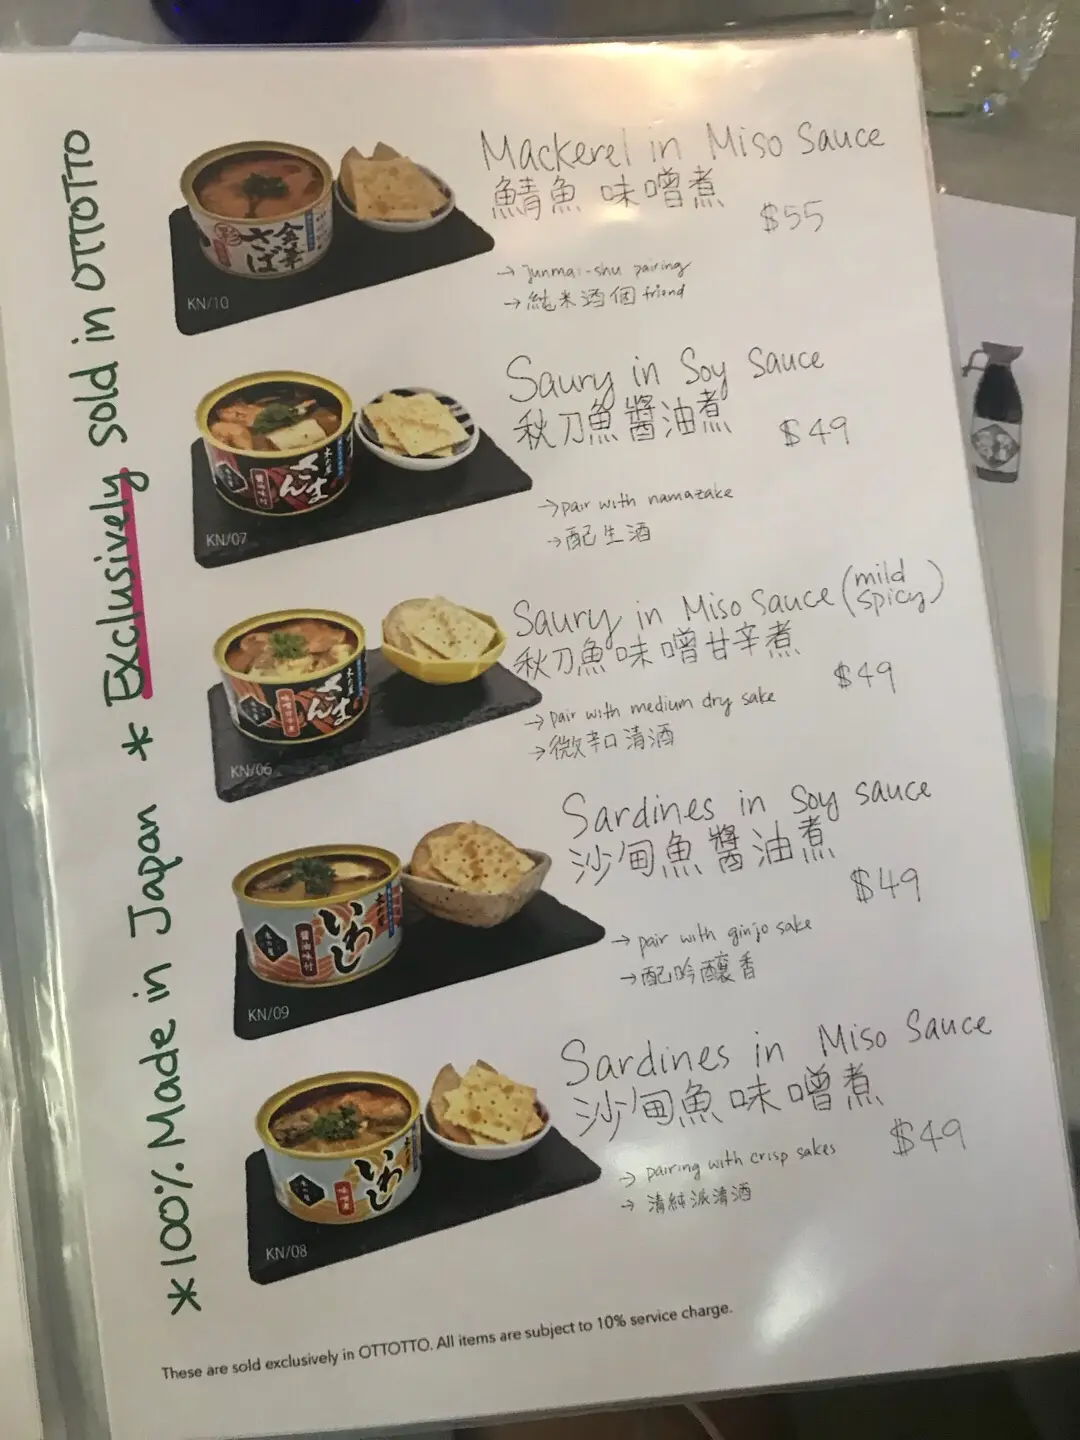 *100% Made in Japan * Exclusively sold in OTTOTTO
Mackerel in Miso Sauce
鯖魚 味噌煮
$55
→ Junmai-shu pairing
→ 純米酒個 friend
金華
さば
KN/10
Saury in Soy Sauce
秋刀魚醬油煮
$49
→ pair with namazake
→ 配生酒
さんま
醤油味付
KN/07
Saury in Miso Sauce (mild spicy)
秋刀魚味噌甘辛煮
$49
→ pair with medium dry sake
→ 微辛口清酒
さんま
KN/06
Sardines in Soy sauce
沙甸魚醬油煮
$49
→ pair with ginjo sake
→ 配吟釀香
いわし
醤油味付
KN/09
Sardines in Miso Sauce
沙甸魚味噌煮
$49
→ pairing with crisp sakes
→ 清純派清酒
いわし
味噌煮
KN/08
These are sold exclusively in OTTOTTO. All items are subject to 10% service charge.